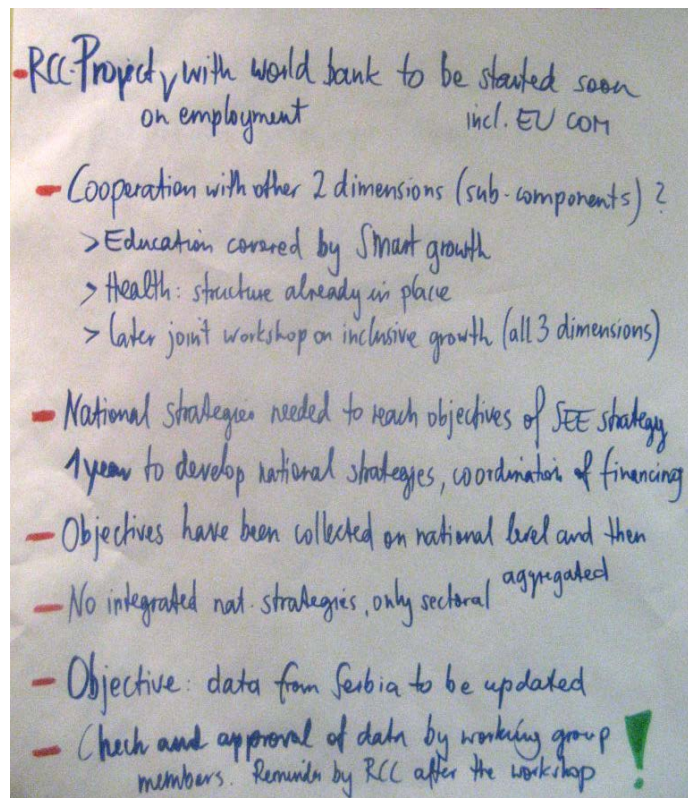 - RCC-Project √ with world bank to be started soon
on employment incl. EU COM
- Cooperation with other 2 dimensions (sub-components)?
> Education covered by Smart growth
> Health: structure already in place
> Later joint workshop on inclusive growth (all 3 dimensions)
- National strategies needed to reach objectives of SEE strategy
1 year to develop national strategies, coordination of financing
- Objectives have been collected on national level and then
aggregated
- No integrated nat. strategies, only sectoral
- Objective: data from Serbia to be updated
- Check and approval of data by working group
members. Reminder by RCC after the workshop !